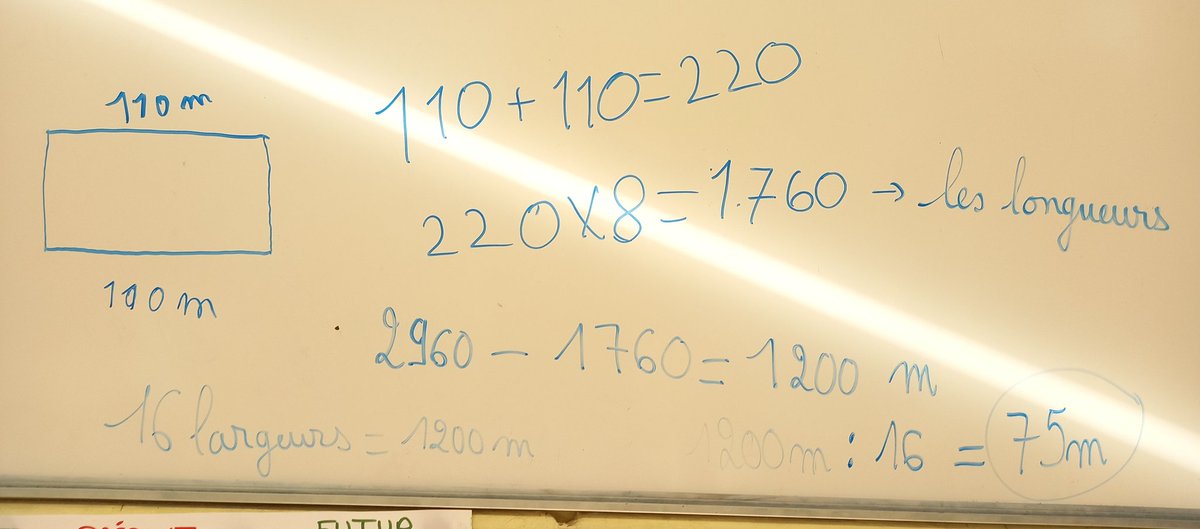 110 m
110 + 110 = 220
220 X 8 = 1.760 → les longueurs
110 m
2960 - 1760 = 1200 m
16 largeurs = 1200 m
1200m : 16 = 75m
FUTUR